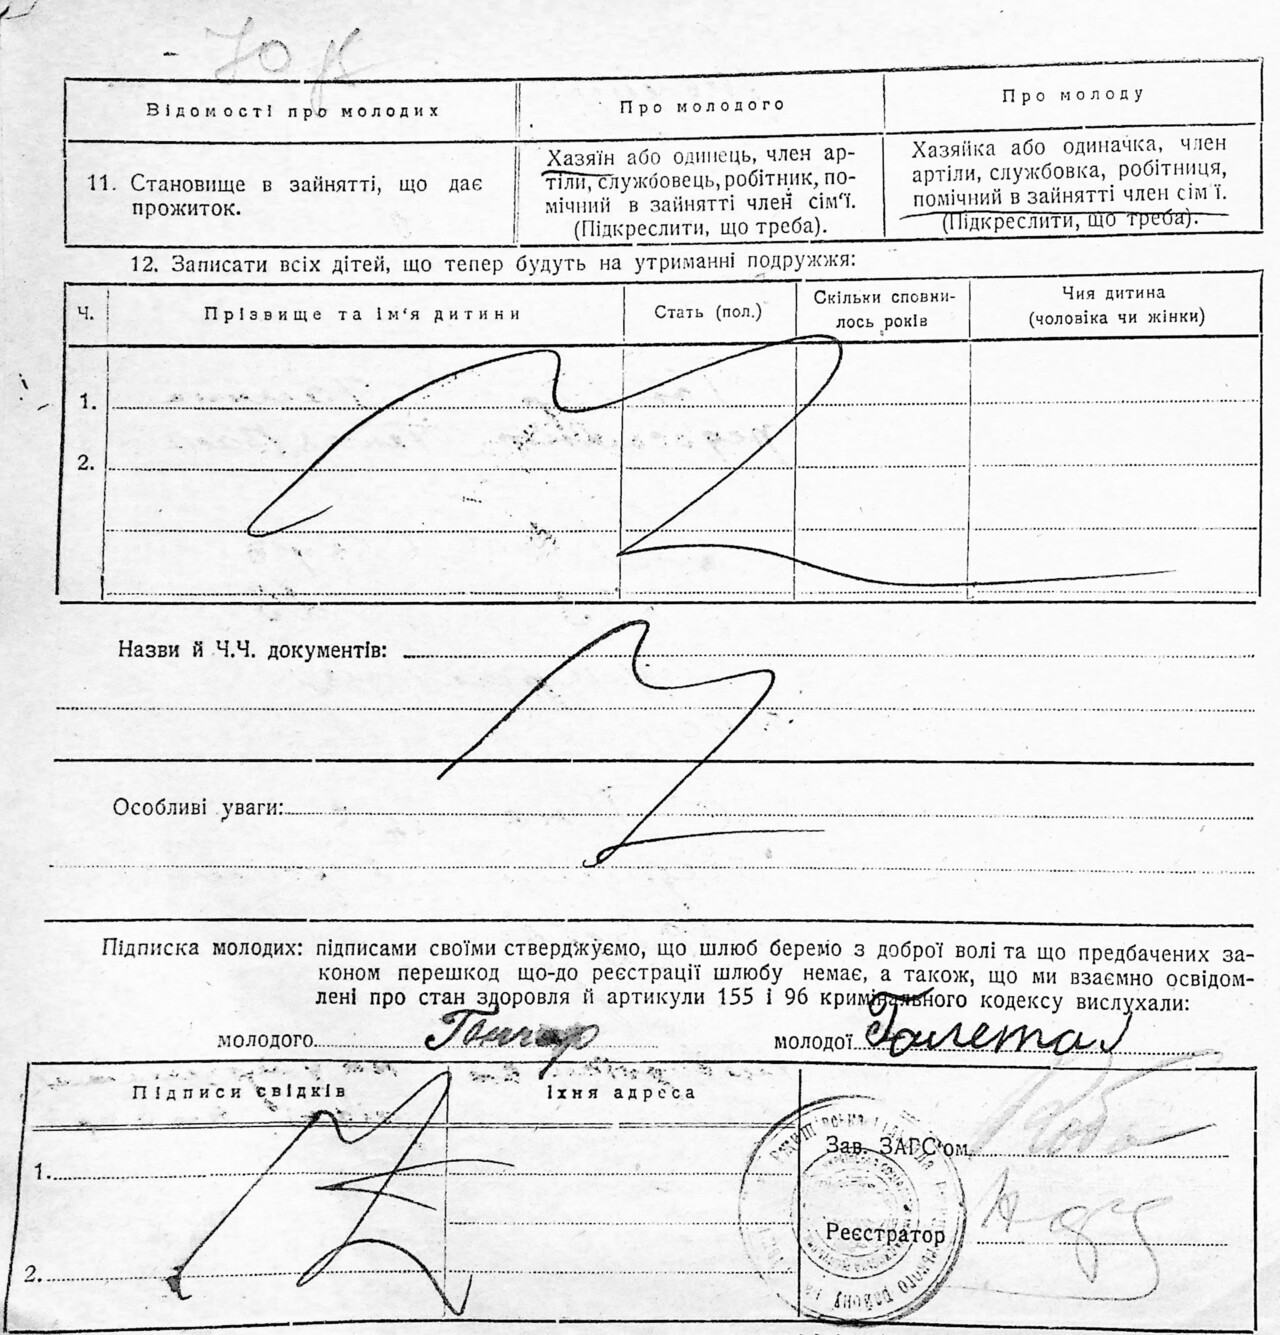 Відомості про молодих
Про молодого
Про молоду
11. Становище в зайнятті, що дає
прожиток.
Хазяїн або одинець, член ар-
тіли, службовець, робітник, по-
мічний в зайнятті член сім'ї.
(Підкреслити, що треба).
Хазяйка або одиначка, член
артіли, службовка, робітниця,
помічний в зайнятті член сім ї.
(Підкреслити, що треба).
12. Записати всіх дітей, що тепер будуть на утриманні подружжя:
Ч.
Прізвище та ім'я дитини
Стать (пол.)
Скільки сповни-
лось років
Чия дитина
(чоловіка чи жінки)
1.
2.
Назви й Ч.Ч. документів:
Особливі уваги:
Підписка молодих: підписами своїми стверджуємо, що шлюб беремо з доброї волі та що предбачених за-
коном перешкод що-до реєстрації шлюбу немає, а також, що ми взаємно освідом-
лені про стан здоровля й артикули 155 і 96 кримінального кодексу вислухали:
молодого Гончар молодої Галета
Підписи свідків
Їхня адреса
1.
2.
Зав. ЗАГС'ом
Реєстратор